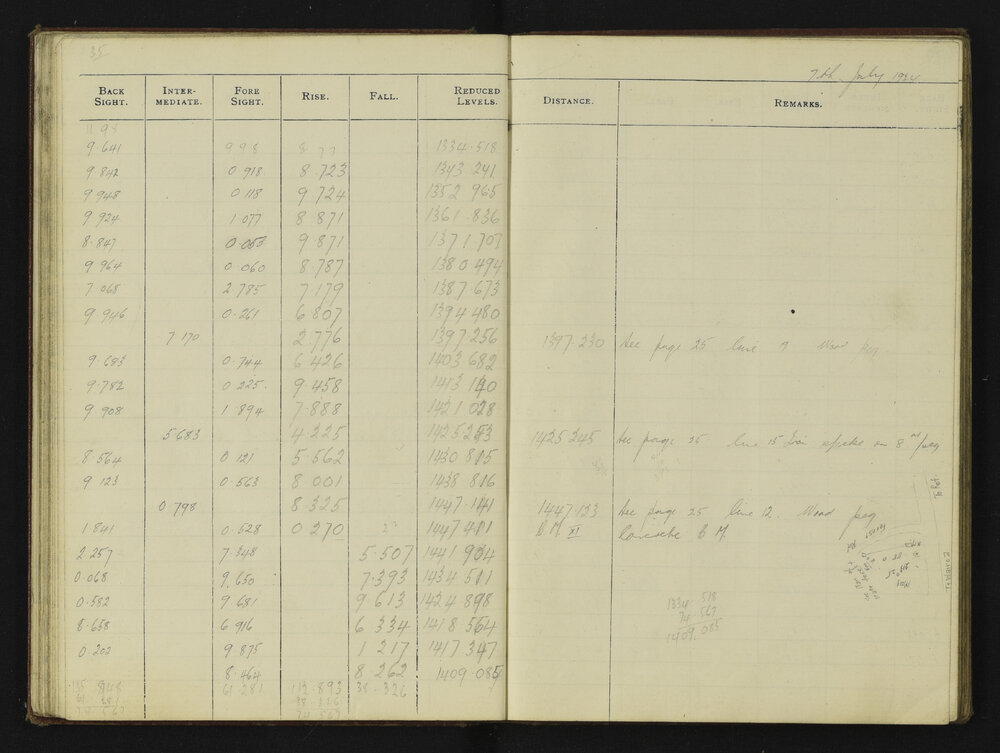 35
7th July
BACK SIGHT. INTER-MEDIATE. FORE SIGHT. RISE. FALL. REDUCED LEVELS. DISTANCE. REMARKS.
9.641 998 1334.518
9.842 0.918 8.723 1343.241
9.948 0.118 9.724 1352.965
9.924 1.077 8.871 1361.836
8.847 0.053 9.871 1371.707
9.964 0.060 8.787 1380.494
7.068 2.785 7.179 1387.673
9.946 0.261 6.807 1394.480
7.170 2.776 1397.256 1397.230 See page 25 line 9 Wood peg
9.683 0.744 6.426 1403.682
9.782 0.225. 9.458 1413.140
9.908 1.894 7.888 1421.028
5.683 4.225 1425.253 1425.245 See page 25 line 15 spike on 8nd peg
8.564 0.121 5.562 1430.815
9.123 0.563 8.001 1438.816
0.798 8.325 1447.141 1447.133 See page 25 line 12. Wood peg
1.841 0.528 0.270 1447.411 B.M. XI Concrete B M.
2.257 7.348 5.507 1441.904
0.068 9.650 7.393 1434.511
0.582 9.681 9.613 1424.898 1334.518
8.658 6.916 6.334 1418.564 74.567
0.202 9.875 1.217 1417.347 1409.085
8.464 8.262 1409.085
135.848 61.281 112.893 38.326
61.281 38.326
74.567 74.567